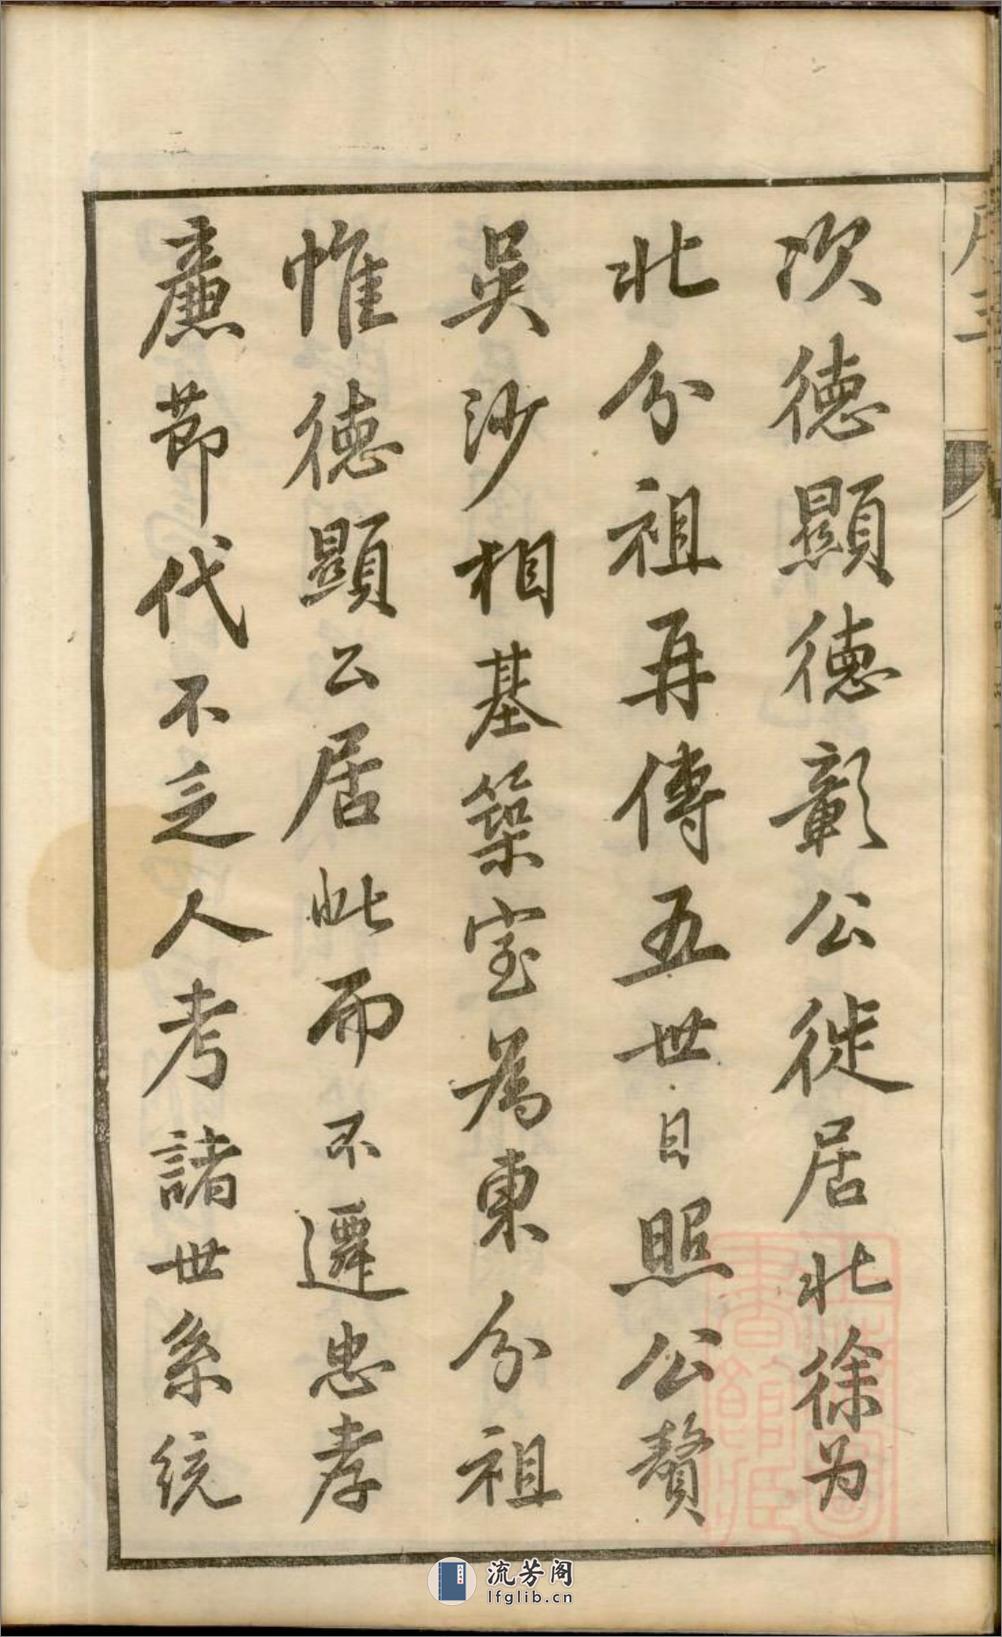 次德顯德彰公徙居北徐为
北分祖再傳五世曰照公贅
吳沙相基築室為東分祖
惟德顯公居此而不遷忠孝
廉節代不乏人考諸世系統
流芳阁
lfglib.cn